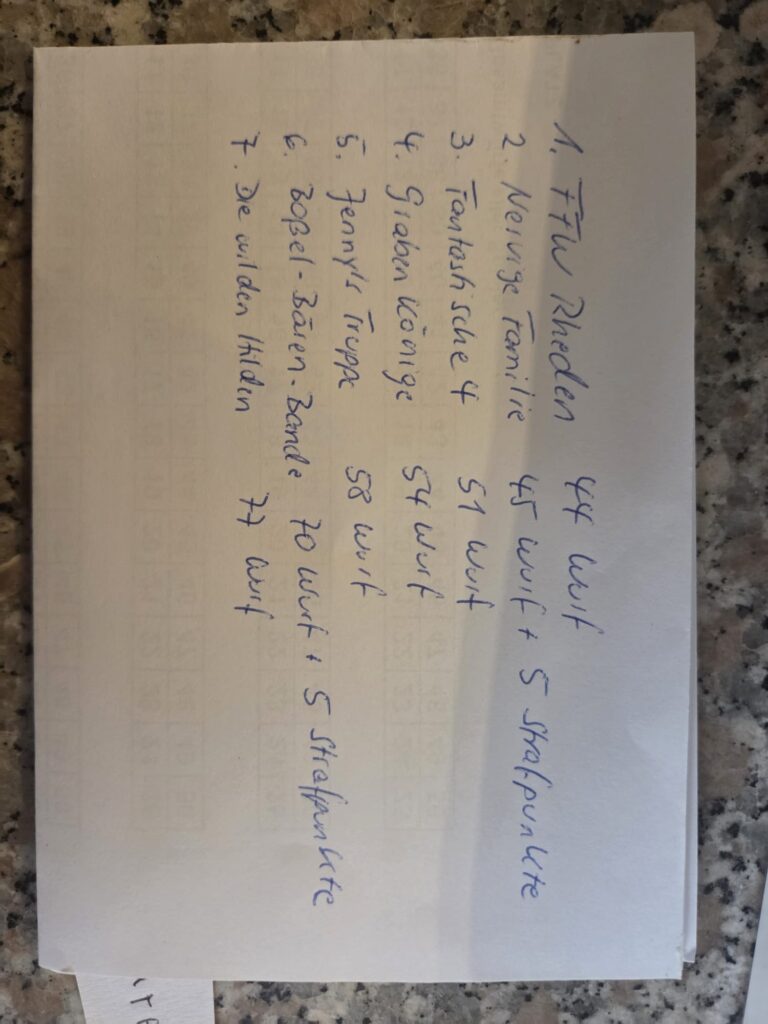 1. FFW Rheden 44 Wurf
2. Nervige Familie 45 Wurf + 5 Strafpunkte
3. Fantastische 4 51 Wurf
4. Graben Könige 54 Wurf
5. Jenny's Truppe 58 Wurf
6. Boßel-Bären-Bande 70 Wurf + 5 Strafpunkte
7. Die wilden Hilden 77 Wurf